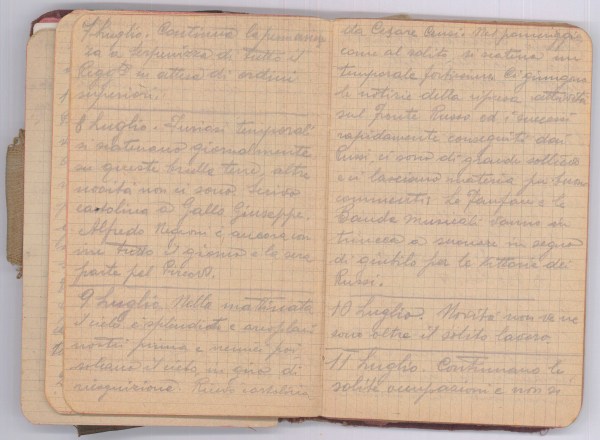 7 Luglio. Continua la permanen
za a Serpenizza di tutto il
in attesa di ordini
superiori.
8 Luglio. Furiosi temporali
si scatenano giornalmente
su queste brulle terre, altre
novità non ci sono. Scrivo
cartolina a Gallo Giuseppe.
Alfredo Negroni è ancora con
me tutto il giorno e la sera
parte pel
9 Luglio. Nella mattinata
il cielo è splendido e aeroplani
nostri prima e nemici poi
solcano il cielo, in giro di
ricognizione. Ricevo cartolina
da Cesare Causi. Nel pomeriggio
come al solito, si scatena un
temporale fortissimo. Ci giungono
le notizie della ripresa attività
sul fronte Russo ed i successi
rapidamente conseguiti dai
Russi, ci sono di grande sollievo
e ci lasciano materia per buoni
commenti. Le Fanfare e le
Bande musicali vanno in
trincea a suonare in segno
di giubilo per le vittorie dei
Russi.
10 Luglio. Novità non ve ne
sono oltre il solito lavoro.
11 Luglio. Continuano le
solite occupazioni e non si